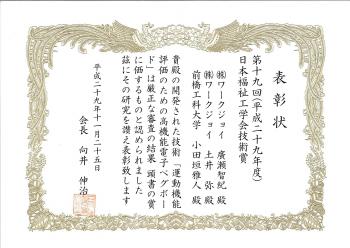 表彰状
第十九回(平成二十九年度)
日本福祉工学会技術賞
㈱ワークジョイ 廣瀬智紀 殿
㈱ワークジョイ 土井 弥 殿
前橋工科大学 小田垣雅人 殿
貴殿の開発された技術「運動機能
評価のための高機能電子ペグボー
ド」は厳正な審査の結果 頭書の賞
に価するものと認められました
茲にその研究を讃え表彰致します
平成二十九年十一月二十五日
会長 向井 伸治